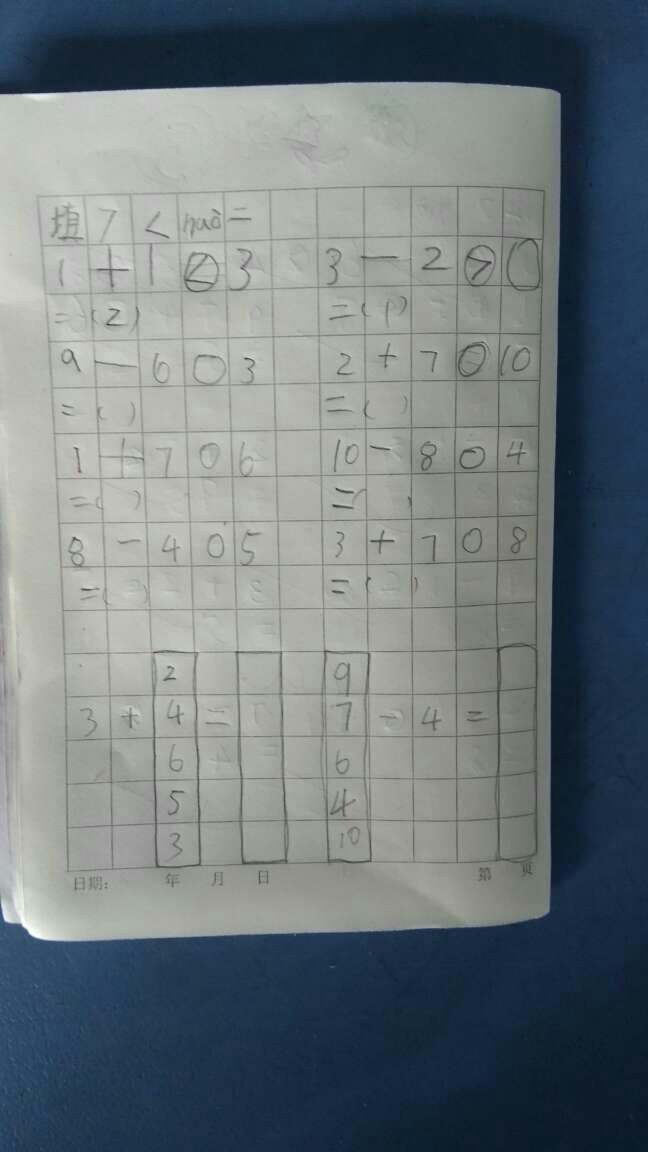 填 > < huò =
1 + 1 < 3 3 - 2 > 0
= (2) = (1)
9 - 6 ○ 3 2 + 7 ○ 10
= ( ) = ( )
1 + 7 ○ 6 10 - 8 ○ 4
= ( ) = ( )
8 - 4 ○ 5 3 + 7 ○ 8
= ( ) = ( )
2 9
3 + 4 = 7 - 4 =
6 6
5 4
3 10
日期: 年 月 日 第 页